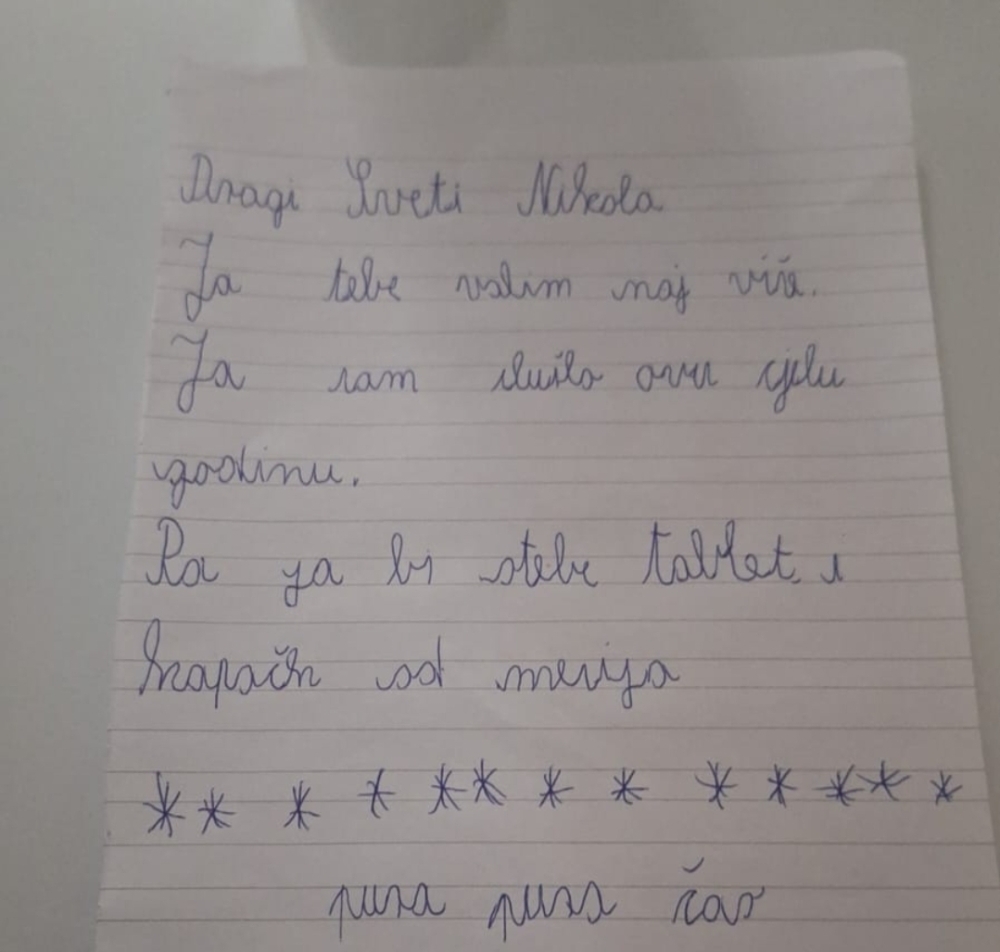 Dragi Sveti Nikola
Ja tebe volim naj više.
Ja sam slušla ovu cjelu
godinu.
Pa ja bi stebe tablet i
kopačk od mesija
pusa pusa čao